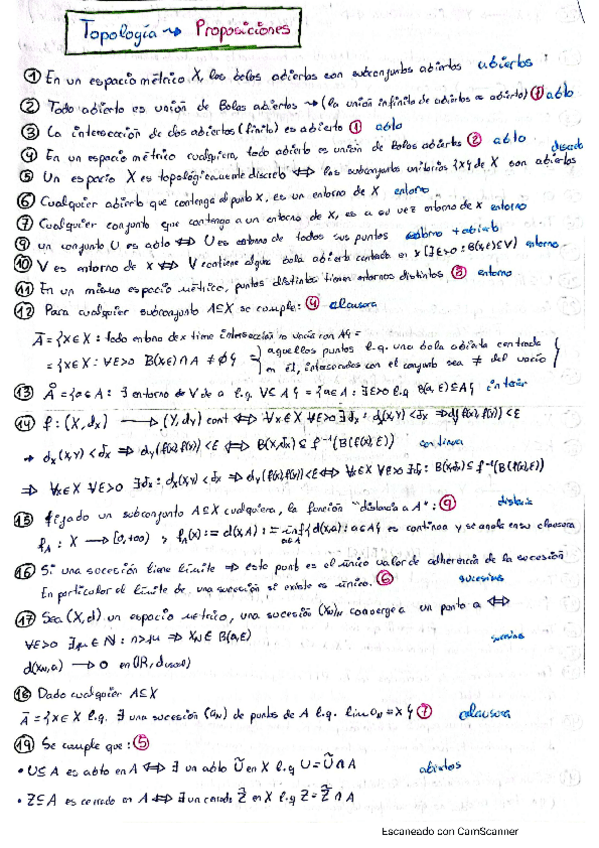 Topología ⇝ Proposiciones
① En un espacio métrico X, las bolas abiertas son subconjuntos abiertos abiertos
② Todo abierto es unión de Bolas abiertas → (la unión infinita de abiertos es abierto) ① abto
③ La intersección de dos abiertos (finito) es abierto ① abto
④ En un espacio métrico cualquiera, todo abierto es unión de bolas abiertas ② abto
⑤ Un espacio X es topológicamente discreto ⟺ los subconjuntos unitarios {x} de X son abiertos discreto
⑥ Cualquier abierto que contenga al punto x, es un entorno de x entorno
⑦ Cualquier conjunto que contenga a un entorno de x, es a su vez entorno de x entorno
⑨ un conjunto U es abto ⟺ U es entorno de todos sus puntos entorno + abierto
⑩ V es entorno de x ⟺ V contiene alguna bola abierta centrada en x [∃ε>0 : B(x,ε)⊆V] entorno
⑪ En un mismo espacio métrico, puntos distintos tienen entornos distintos ③ entorno
⑫ Para cualquier subconjunto A⊆X se cumple: ④ clausura
Ā = {x∈X : todo entorno de x tiene intersección no vacía con A} =
= {x∈X : ∀ε>0 B(x,ε)∩A ≠ ∅} = {aquellos puntos t.q. una bola abierta centrada
en él, intersecados con el conjunto sea ≠ del vacío}
⑬ Å = {a∈A : ∃ entorno V de a t.q. V⊆A} = {a∈A : ∃ε>0 t.q B(a,ε)⊆A} interior
⑭ f : (X,dx) → (Y,dy) cont ⟺ ∀x∈X ∀ε>0 ∃δx : dx(x,y)<δx ⇒ dy(f(x),f(y))<ε
→ dx(x,y)<δx ⇒ dy(f(x),f(y))<ε ⟺ B(x,δx)⊆f⁻¹(B(f(x),ε)) continua
⇒ ∀x∈X ∀ε>0 ∃δx : dx(x,y)<δx ⇒ dy(f(x),f(y))<ε ⟺ ∀x∈X ∀ε>0 ∃δx : B(x,δx)⊆f⁻¹(B(f(x),ε))
⑮ fijado un subconjunto A⊆X cualquiera, la función "distancia a A" : ⑨ distancia
fA : X → [0,+∞) , fA(x) := d(x,A) := inf{d(x,a) : a∈A} es continua y se anula en su clausura
a∈A
⑯ Si una sucesión tiene límite ⇒ este punto es el único valor de adherencia de la sucesión
En particular el límite de una sucesión si existe es único. ⑥ sucesiones
⑰ Sea (X,d) un espacio métrico, una sucesión (xₙ)ₙ converge a un punto a ⟺
∀ε>0 ∃μ∈ℕ : n>μ ⇒ xₙ∈B(a,ε)
d(xₙ,a) → 0 en (ℝ, dusual)
⑱ Dado cualquier A⊆X
Ā = {x∈X t.q. ∃ una sucesión (aₙ) de puntos de A t.q. lim aₙ = x} ⑦ clausura
⑲ Se cumple que : ⑤
• U⊆A es abto en A ⟺ ∃ un abto Ũ en X t.q U = Ũ∩A abiertos
• Z⊆A es cerrado en A ⟺ ∃ un cerrado Z̃ en X t.q Z = Z̃∩A
Escaneado con CamScanner